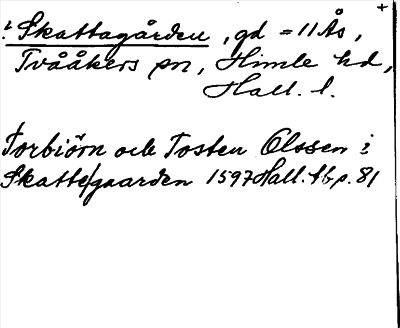 +
? Skattagården, gd = 11 Ås,
Tvååkers sn, Himle hd,
Hall. l.
Torbiörn och Tosten Olssen i
Skatte/gaarden 1597 Hall. tb p. 81